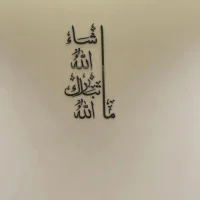 ما شاء
الله
تبارك
الله